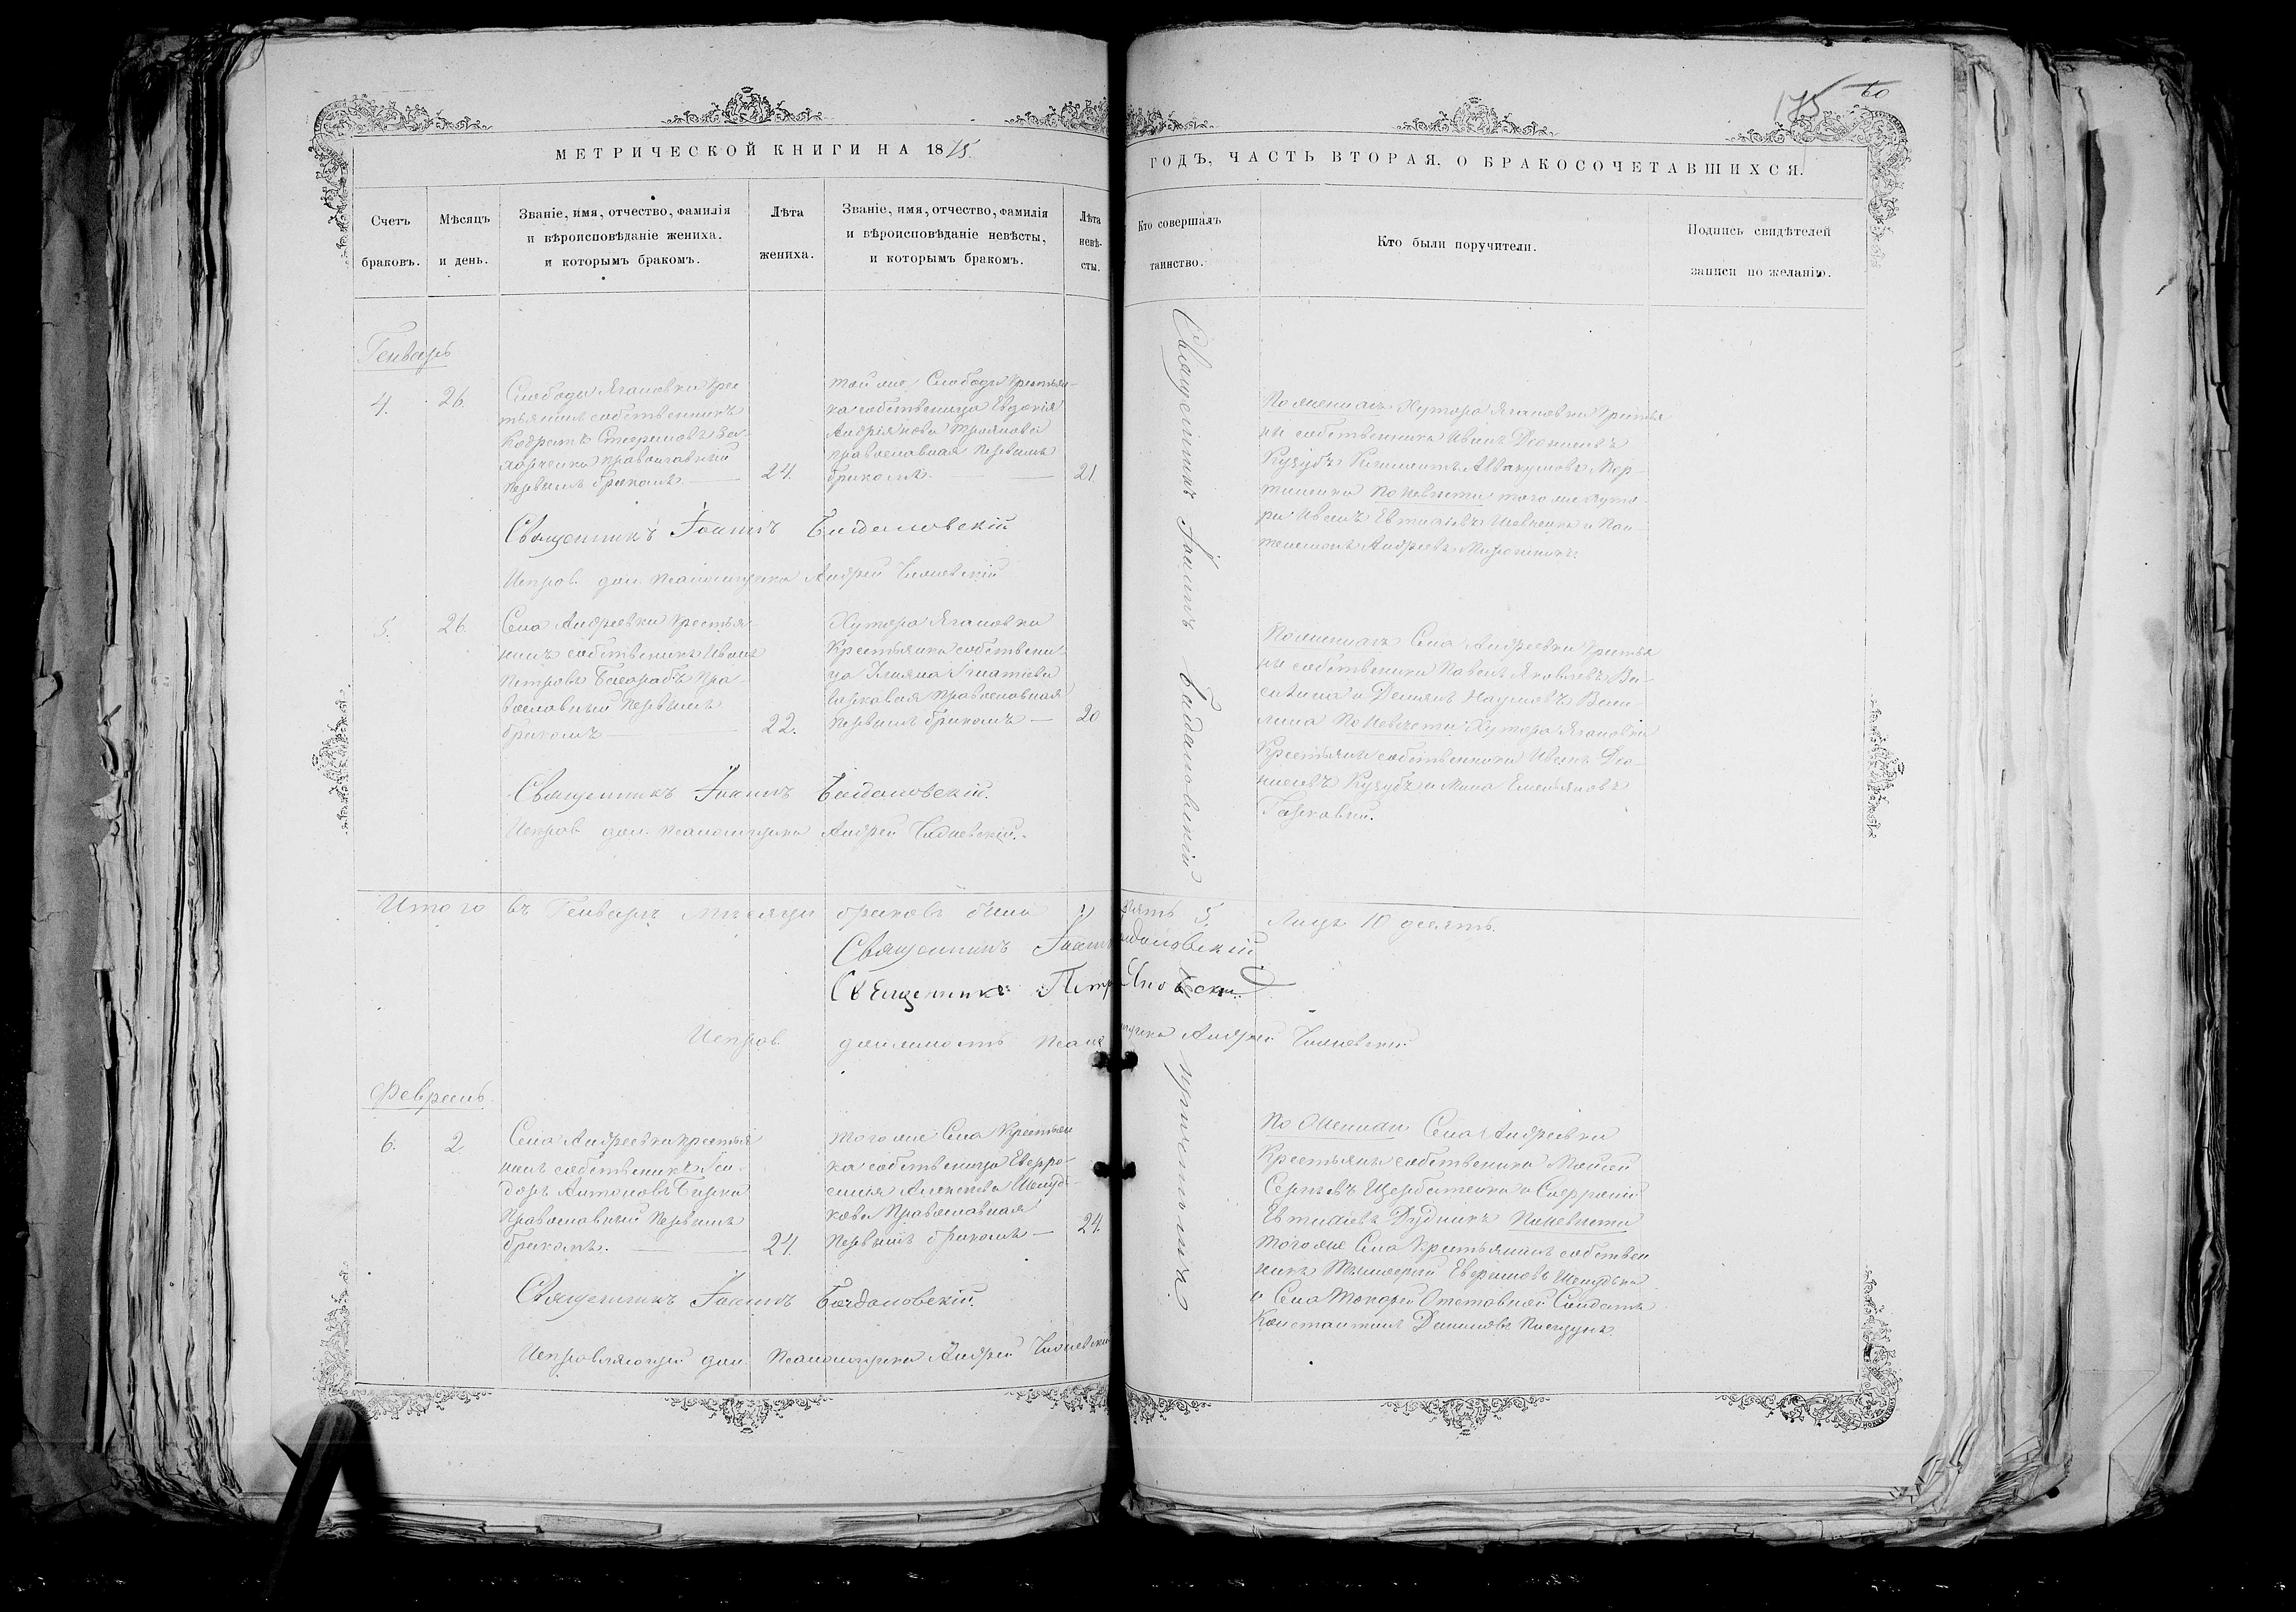 175 60
МЕТРИЧЕСКОЙ КНИГИ НА 1875.
ГОДЪ, ЧАСТЬ ВТОРАЯ, О БРАКОСОЧЕТАВШИХСЯ.
Счетъ браковъ.
Мѣсяцъ и день.
Званіе, имя, отчество, фамилія
и вѣроисповѣданіе жениха.
и которымъ бракомъ.
Лѣта
жениха.
Званіе, имя, отчество, фамилія
и вѣроисповѣданіе невѣсты,
и которымъ бракомъ.
Лѣта
невѣ-
сты.
Кто совершалъ
таинство.
Кто были поручители.
Подпись свидѣтелей
записи по желанію.
Генварь
4.
26.
Слободы Ягановки крес
тьянинъ собственникъ
православный
первымъ бракомъ.
24.
той же Слободы крестьян-
ка собственица Евдокія
Андріянова Троянова
православная первымъ
бракомъ.
21.
По женихѣ Хутора Ягановки крестья
не собственники Иванъ Деонисовъ
Кузубъ Аввакумовъ Мар-
тыненко по невѣсте того же хуто-
ра Иванъ Евтихіевъ Шевченко и Пан-
телеймонъ Андреевъ
Священникъ Іоаннъ Богдановскій
Исправ. дол. псаломщика Андрей
5.
26.
Села Андреевки крестья-
нинъ собственникъ Иванъ
Петровъ Пра-
вославный первымъ
бракомъ
22.
Хутора Ягановки
Крестьянка собствени-
ца Ігнатіева
Гаркавая православная
первымъ бракомъ
20
По женихѣ Села Андреевки крестья
не собственники Павелъ Яковлевъ Ва-
силина и Демянъ Наумовъ Васи-
лина по невѣсте Хутора Ягановки
Крестьяне собственники Иванъ Део-
нисовъ Кузубъ и Мина Емельяновъ
Гаркавый.
Священникъ Іоаннъ Богдановскій.
Исправ. дол. псаломщика Андрей
Итого въ Генварѣ мѣсяцѣ браковъ было пять 5. Лицъ 10 десять.
Священникъ Іоаннъ Богдановскій
Священникъ Петръ Яновскій
Исправ. должность псаломщика Андрей
Февраль.
6.
2.
Села Андреевки крестья
нинъ собственникъ Іси-
доръ Антоновъ Бирка
Православный первымъ
бракомъ.
24.
того же Села Крестьян
ка собственица Евфро-
синія Алексеева
Православная
первымъ бракомъ
24.
По Женихѣ Села Андреевки
Крестьяне собственики Моисей
Сергѣевъ Щербатенко и Софроній
Евтихіевъ Дудникъ по невѣсте
того же Села Крестьянинъ собствен
никъ Тимофей Евфимовъ
и Села Токарей Отставной Солдатъ
Константинъ Даниловъ
Священникъ Іоаннъ Богдановскій.
Исправляющій дол. псаломщика Андрей
Священникъ Іоаннъ Богдановскій